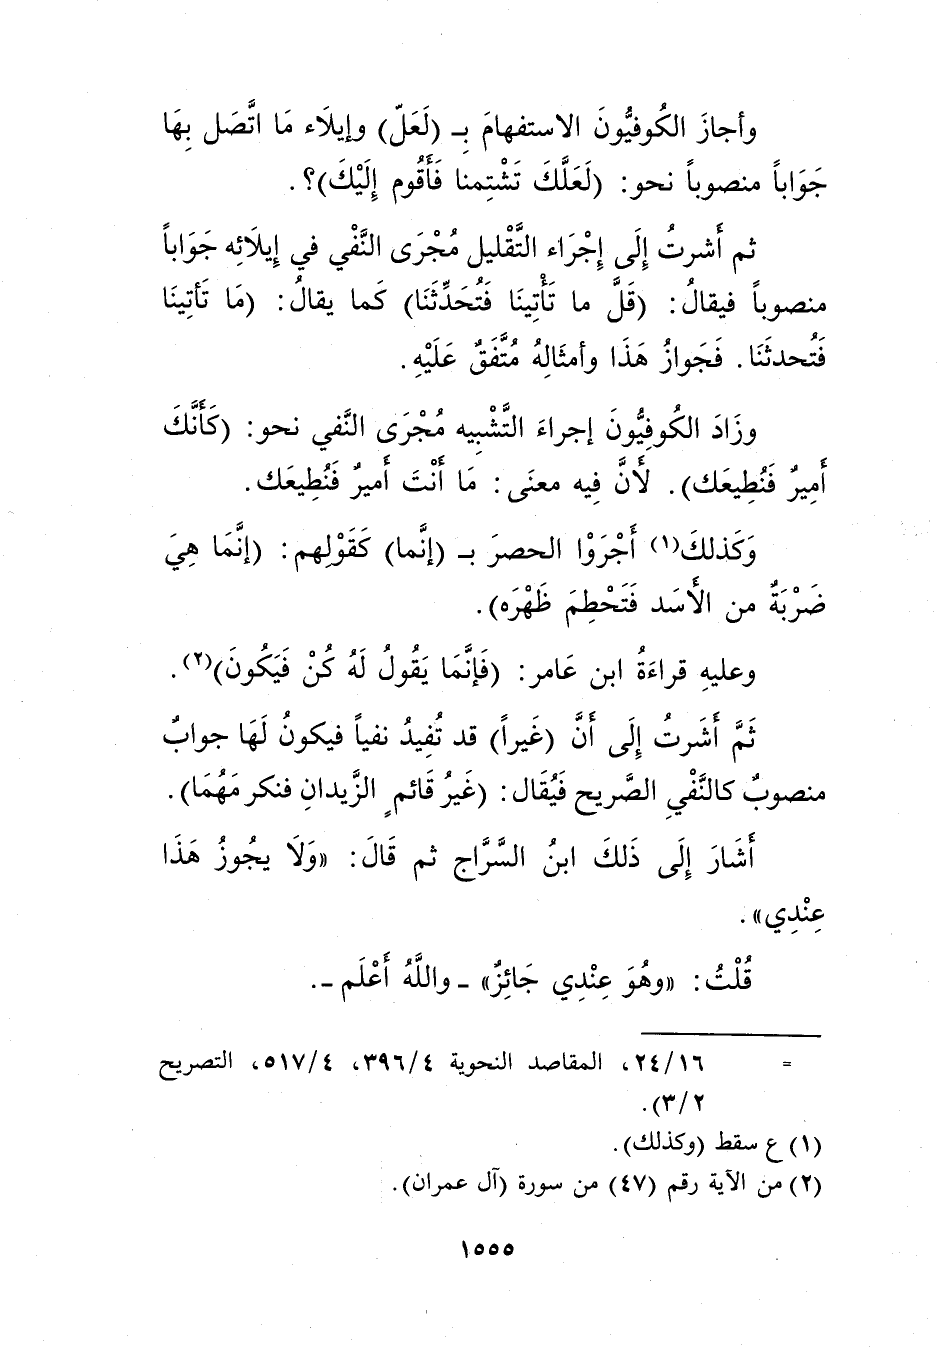 وأجازَ الكُوفيُّونَ الاستفهامَ بِـ (لَعَلّ) وإيلَاء مَا اتَّصَل بِهَا
جَوَاباً منصوباً نحو: (لَعَلَّكَ تَشْتِمنا فَأَقُوم إِلَيْكَ)؟.
ثم أَشرتُ إِلَى إِجْرَاء التَّقْليل مُجْرَى النَّفْي في إِيلَائِه جَوَاباً
منصوباً فيقالُ: (قَلَّ ما تَأْتِينَا فَتُحَدِّثَنَا) كَما يقالُ: (مَا تَأتِينَا
فَتُحدثَنَا. فَجَوازُ هَذَا وأمثَالِهُ مُتَّفَقٌ عَلَيْهِ.
وزَادَ الكُوفِيُّونَ إجراءَ التَّشْبِيه مُجْرَى النَّفي نحو: (كَأَنَّكَ
أَمِيرٌ فَنُطِيعَك). لَأَنَّ فِيه معنَى: مَا أَنْتَ أَميرٌ فَنُطِيعَك.
وَكَذلكَ(١) أَجْرَوْا الحصرَ بـ (إنَّما) كَقَوْلِهم: (إنَّمَا هِيَ
ضَرْبَةٌ من الأَسَد فَتَحْطِمَ ظَهْرَه).
وعليهِ قراءَةُ ابن عَامر: (فَإنَّمَا يَقُولُ لَهُ كُنْ فَيَكُونَ)(٢).
ثَمَّ أَشَرتُ إِلَى أَنَّ (غَيراً) قد تُفِيدُ نفياً فيكونُ لَهَا جوابٌ
منصوبٌ كالنَّفْيِ الصَّريح فَيُقَال: (غَيرُ قَائم ٍ الزَّيدانِ فنكر مَهُمَا).
أَشَارَ إِلَى ذَلكَ ابنُ السَّرَّاج ثم قَالَ: «وَلَا يجُوزُ هَذَا
عِنْدِي».
قُلْتُ: «وهُوَ عِنْدِي جَائِزٌ» ـ واللَّهُ أَعْلَم ـ.
= ٢٤/١٦، المقاصد النحوية ٣٩٦/٤، ٥١٧/٤، التصريح
٣/٢).
(١) ع سقط (وكذلك).
(٢) من الآية رقم (٤٧) من سورة (آل عمران).
١٥٥٥